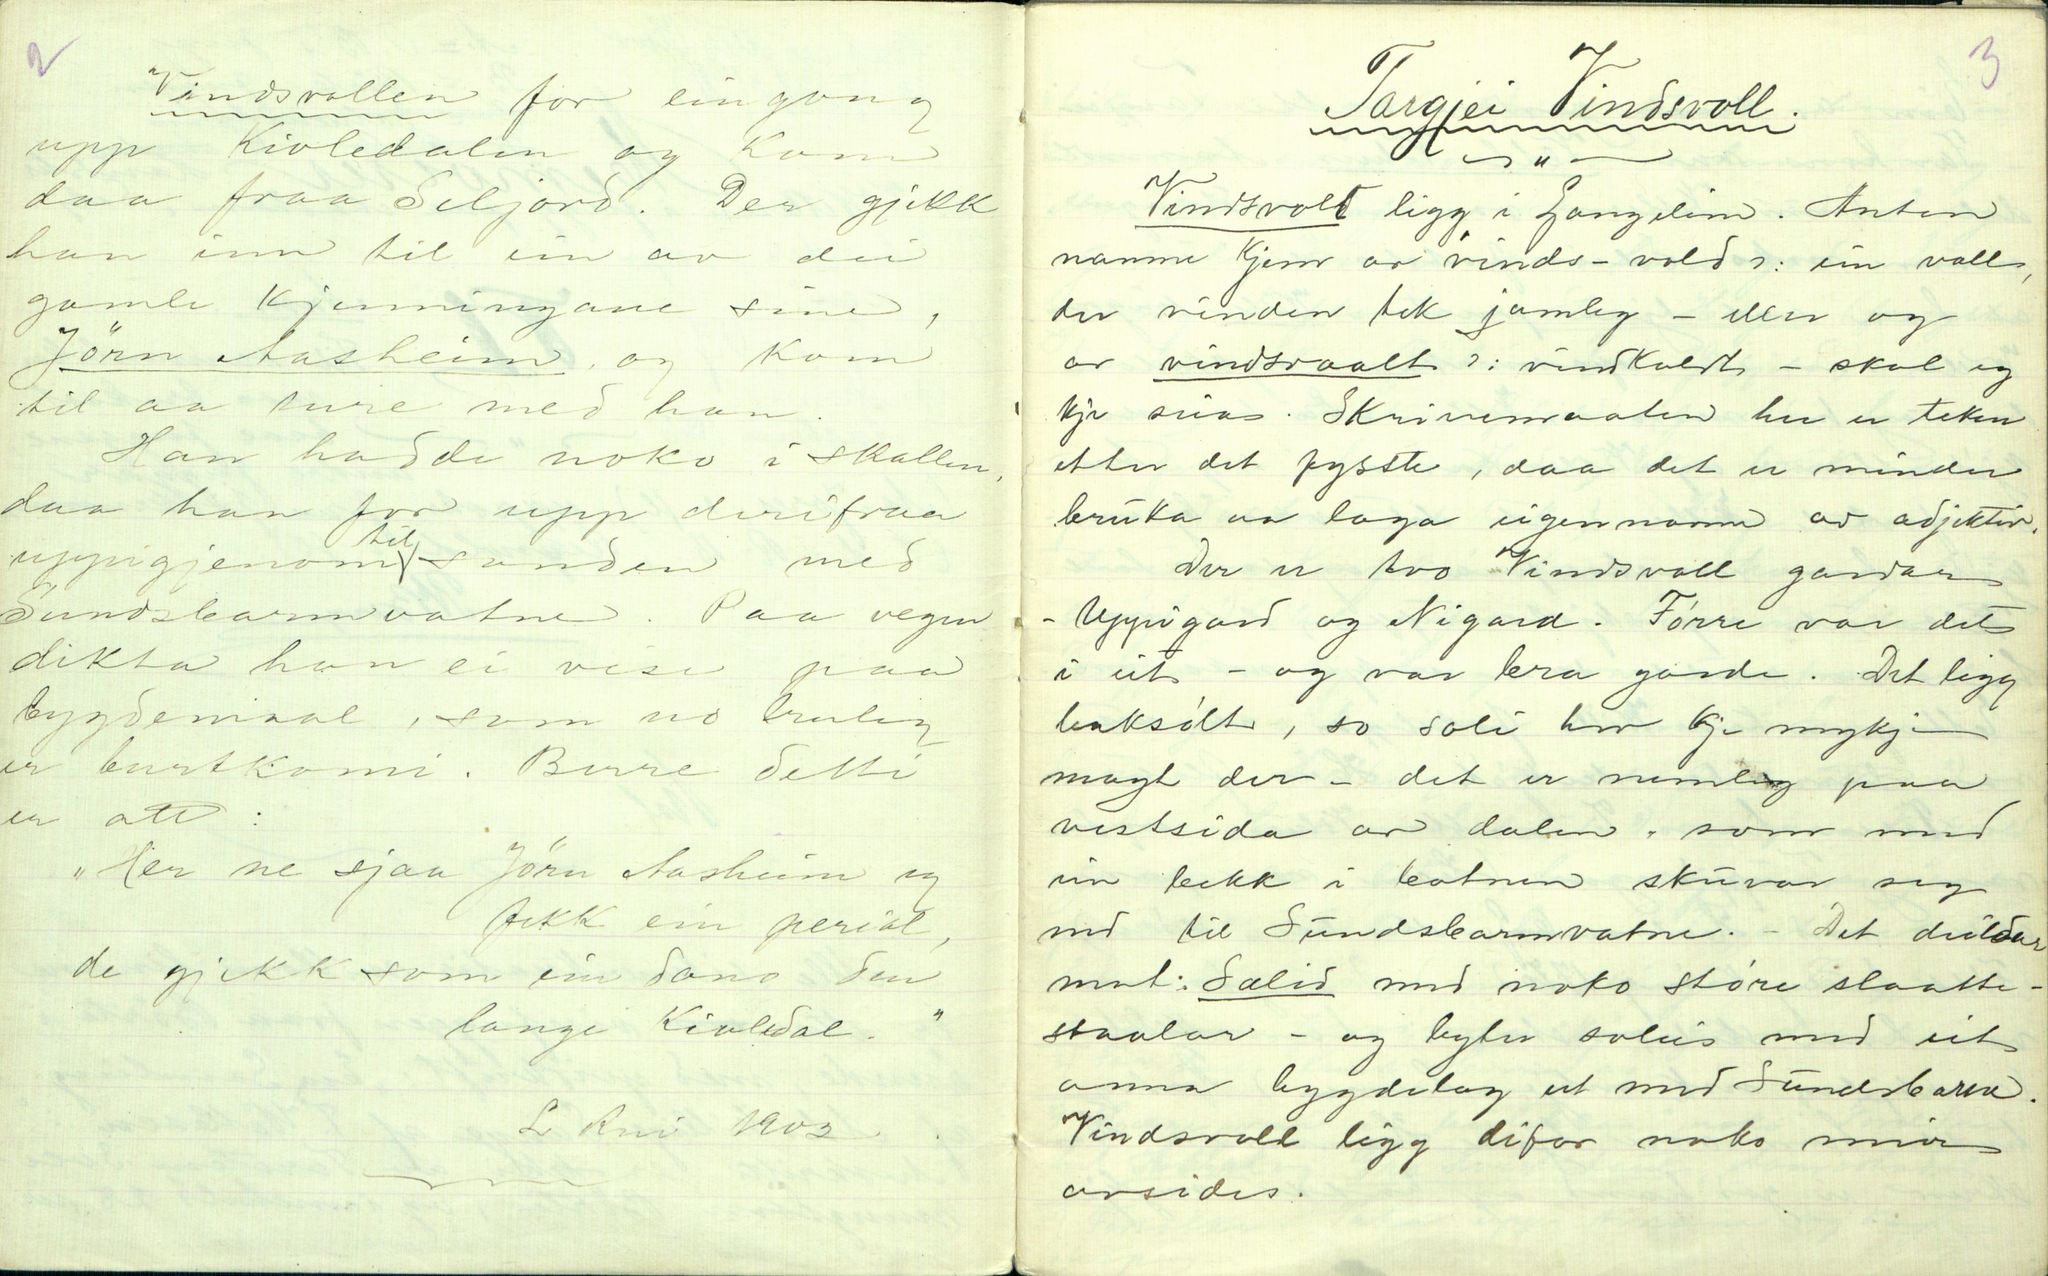 2
Vindsvollen for eingong
upp Kivledalen og kom
daa fraa Seljord. Der gjekk
han inn til ein av dei
gamle kjenningane sine,
Jörn Aasheim, og kom
til aa ture med han.
Han hadde noko i skallen,
daa han for upp derifraa
uppigjenom til sanden med
Sundsbarmvatne. Paa vegen
dikta han ei vise paa
bygdemaal, som no truleg
er burtkomi. Berre detti
er att:
"Her ne sjaa Jörn Aasheim eg
fekk ein perial,
de gjekk som ein dans den
lange Kivledal."
1903
3
Targjei Vindsvoll.
"
Vindsvoll ligg i Langelim. Anten
namne kjem av vinds-vold ɔ: ein voll,
der vinden tek jamleg - eller og
av vindsvaalt ɔ: vindkaldt - skal eg
kje seia. Skrivemaaten her er teken
etter det fysste, daa det er minder
bruka aa laga eigennamn av adjektiv.
Der er tvo Vindsvoll gardar
- Uppigard og Nigard. Förre var det
i eit - og var bra garde. Det ligg
baksölt, so soli hev kje mykje
magt der - det er nemleg paa
vestsida av dalen, som med
ein bekk i botnen skuvar seg
ned til Sundsbarmvatne. - Det deildar
mot: Sælid med noko större slaatte-
staalar - og byter soleis med eit
anna bygdelag ut med Sundsbarm.
Vindsvoll ligg difor noko meir
avsides.